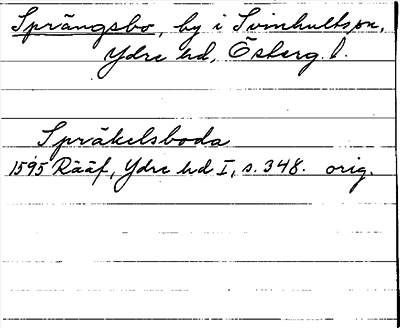 Sprängsbo, by i Svinhultssn,
Ydre hd, Österg. l.
Språkelsboda
1595 Rääf, Ydre hd I, s. 348. orig.